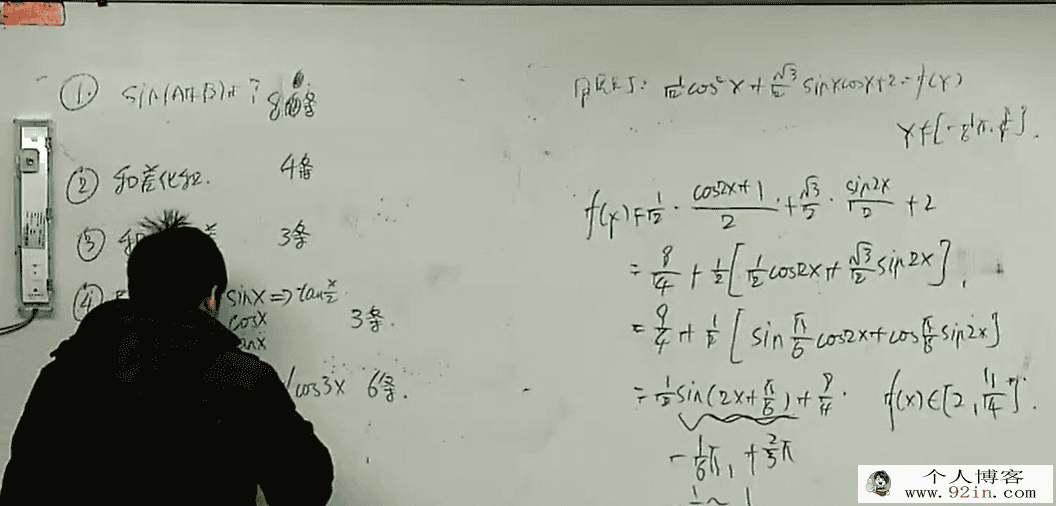 ① sin(A+B)+? 8条
② 和差化积. 4条
③ 3条
④ sinx⇒tan x/2
cosx 3条.
cos3x 6条.
1/2 cos²x+√3/2 sinxcosx+2=f(x)
f(x)=1/2·(cos2x+1)/2+√3/2·sin2x/2+2
=9/4+1/2[1/2cos2x+√3/2sin2x],
=9/4+1/2[sin π/6 cos2x+cos π/6 sin2x]
=1/2sin(2x+π/6)+9/4. f(x)∈[2,11/4].
-1/6π, +2/3π
个人博客
www.92in.com